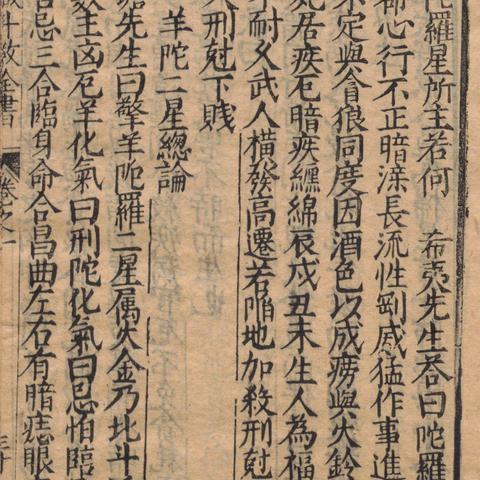 陀羅星所主若何　希夷先生荅曰陀羅
心行不正暗淚長流性剛威猛作事進
不定與貪狼同度因酒色以成癆與火鈴
居疾厄暗疾纏綿辰戌丑未生人為福
不耐久武人橫發高遷若陷地加殺刑尅
刑尅下賤
羊陀二星總論
先生曰擎羊陀羅二星属火金乃北斗
主凶厄羊化氣曰刑陀化氣曰忌怕臨
忌三合臨身命合昌曲左右有暗痣眼
斗数全書　卷之一　三十